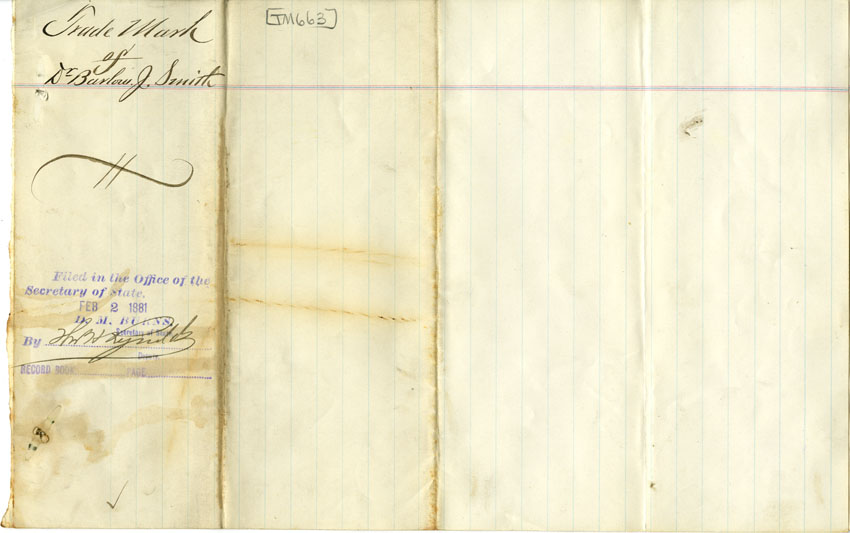 Trade Mark
of
Dr. Barlow J. Smith
[TM663]
Filed in the Office of the
Secretary of State.
FEB 2 1881
D. M. BURNS,
Secretary of State
By
Deputy
RECORD BOOK PAGE